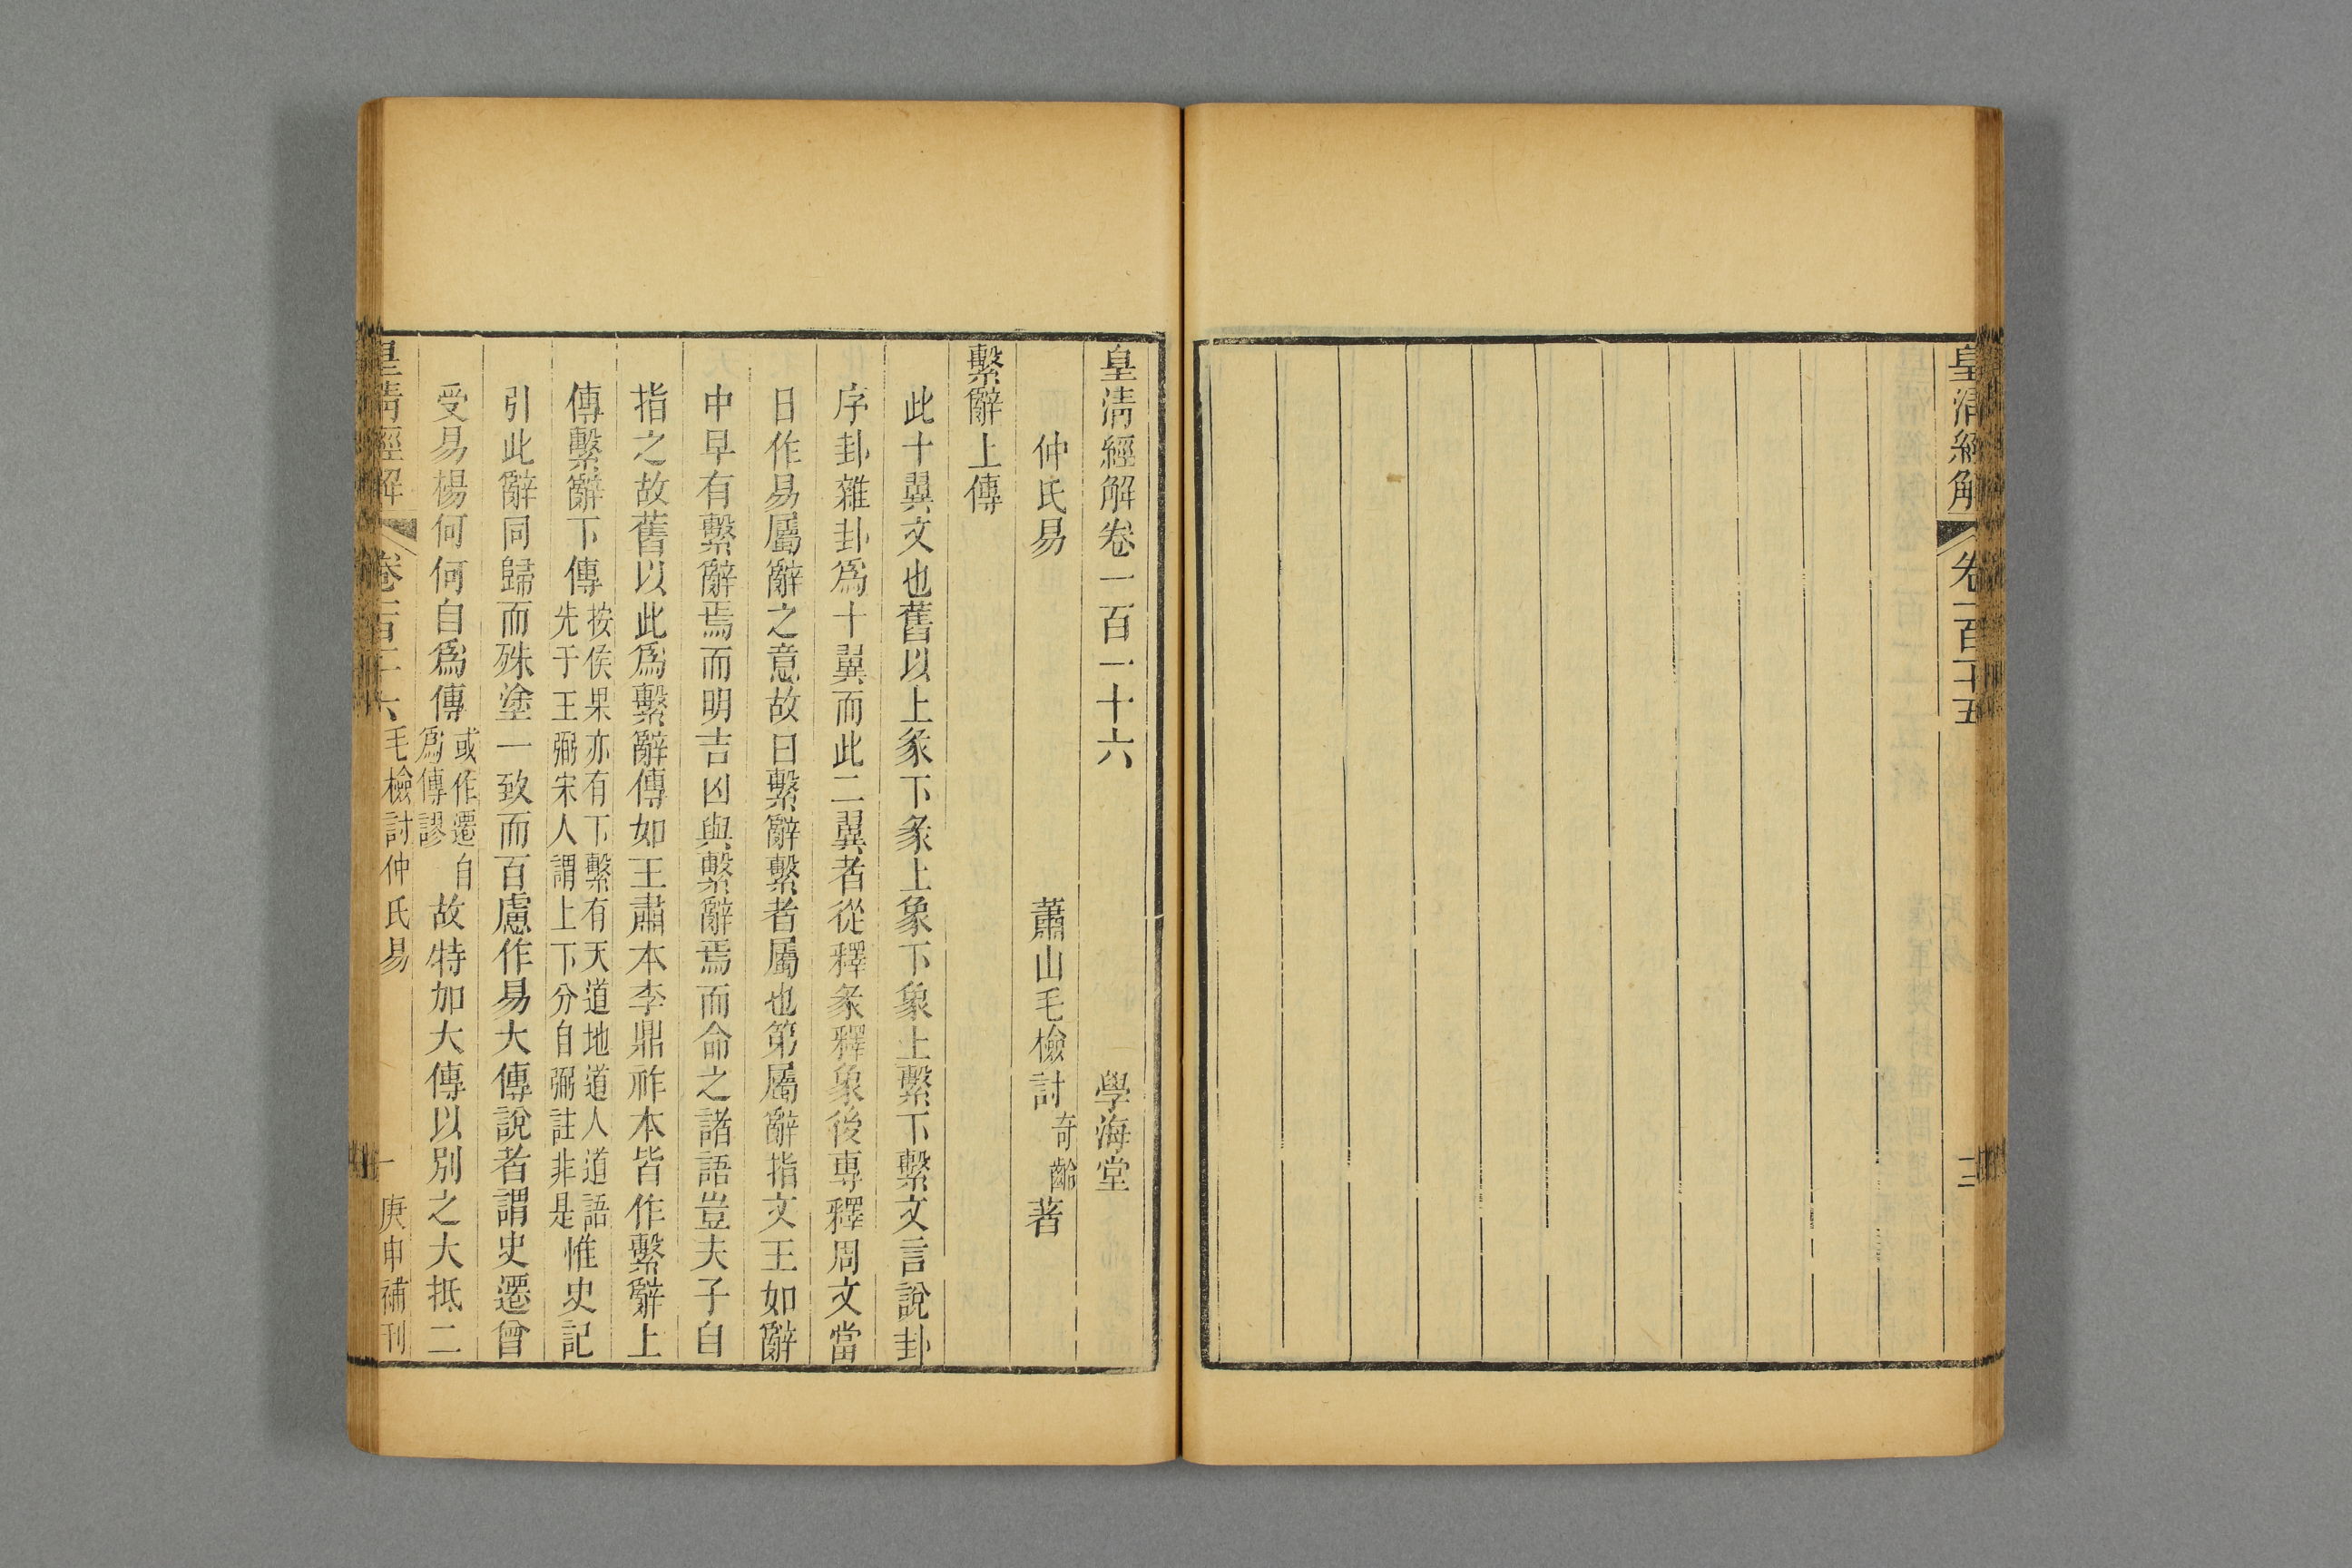 皇清經解 卷一百十五 三
皇清經解卷一百一十六 學海堂
仲氏易 蕭山毛檢討奇齡著
繫辭上傳
此十翼文也舊以上彖下彖上象下象上繫下繫文言說卦
序卦雜卦爲十翼而此二翼者從釋彖釋象後專釋周文當
日作易屬辭之意故曰繫辭繫者屬也第屬辭指文王如辭
中早有繫辭焉而明吉凶與繫辭焉而命之諸語豈夫子自
指之故舊以此爲繫辭傳如王肅本李鼎祚本皆作繫辭上
傳繫辭下傳按侯果亦有下繫有天道地道人道語先于王弼宋人謂上下分自弼註非是惟史記
引此辭同歸而殊塗一致而百慮作易大傳說者謂史遷曾
受易楊何何自爲傳或作遷自爲傳謬故特加大傳以別之大抵二
皇清經解 卷一百十六 毛檢討仲氏易 一 庚申補刊